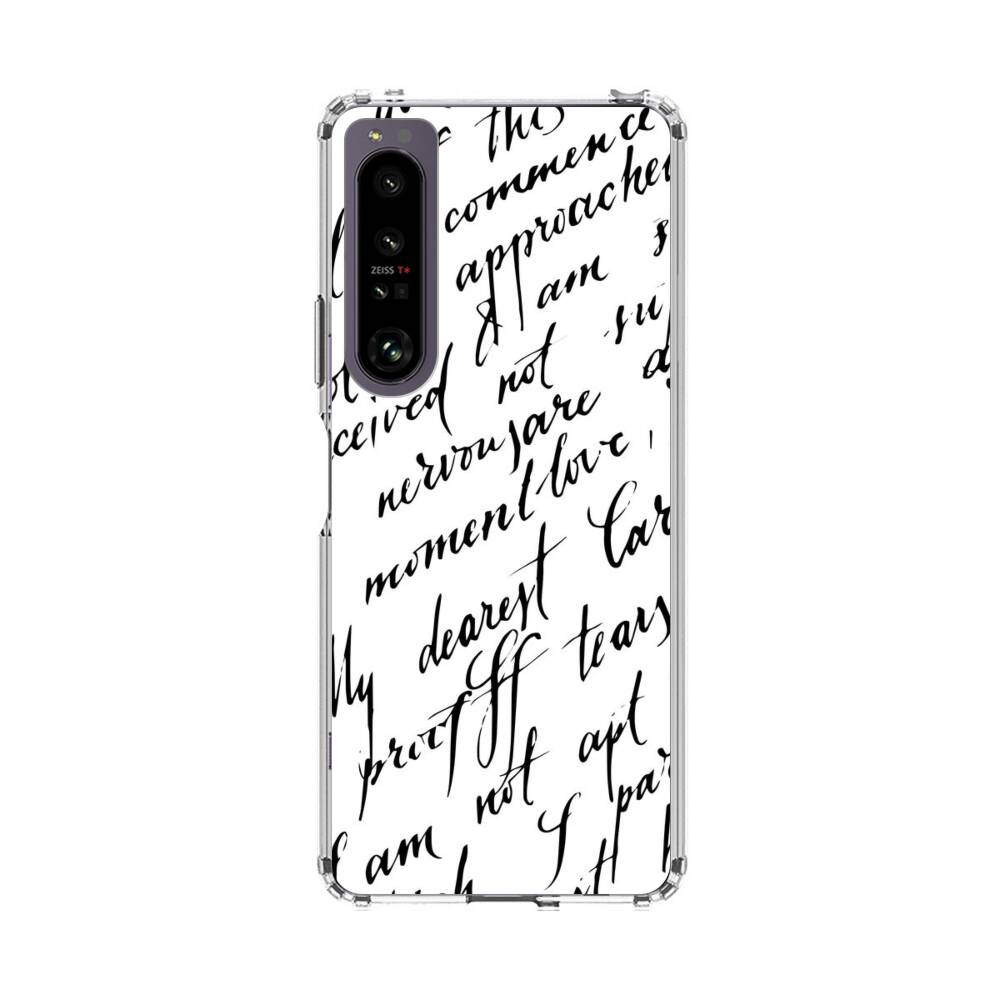 this
commence
approache
& am
ZEISS T*
ceived not su
nervous are
moment love,
My dearest Car
proof tears
am not apt
I par